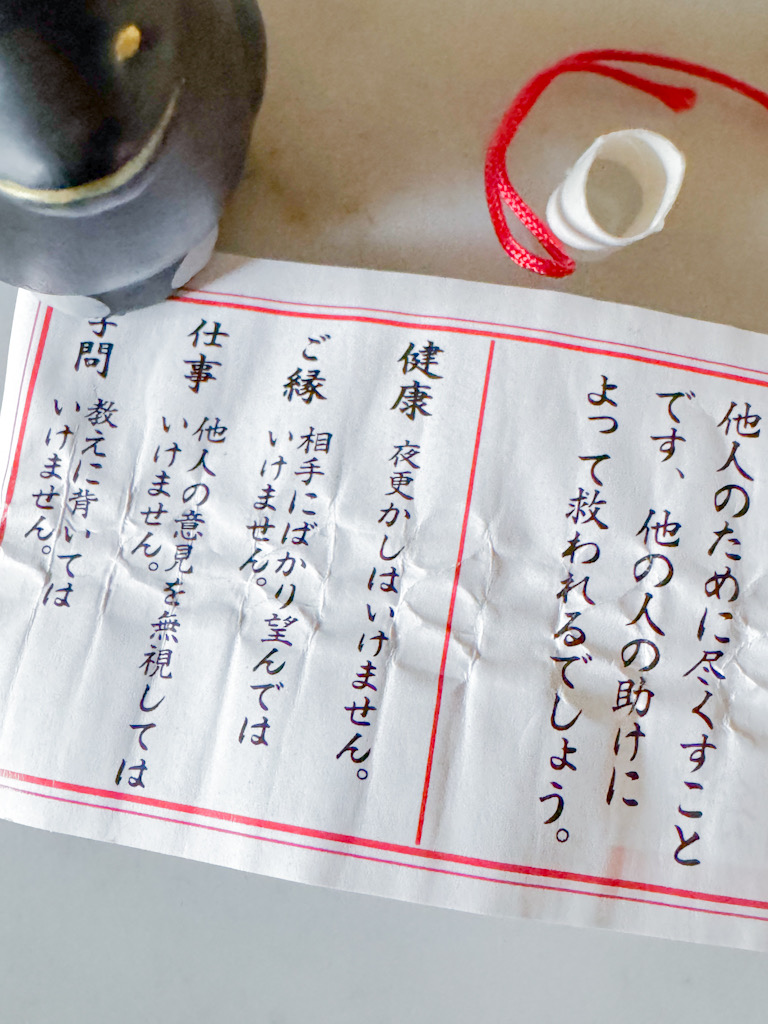 他人のために尽くすこと
です、他の人の助けに
よって救われるでしょう。
健康
夜更かしはいけません。
ご縁
相手にばかり望んでは
いけません。
仕事
他人の意見を無視しては
いけません。
学問
教えに背いては
いけません。